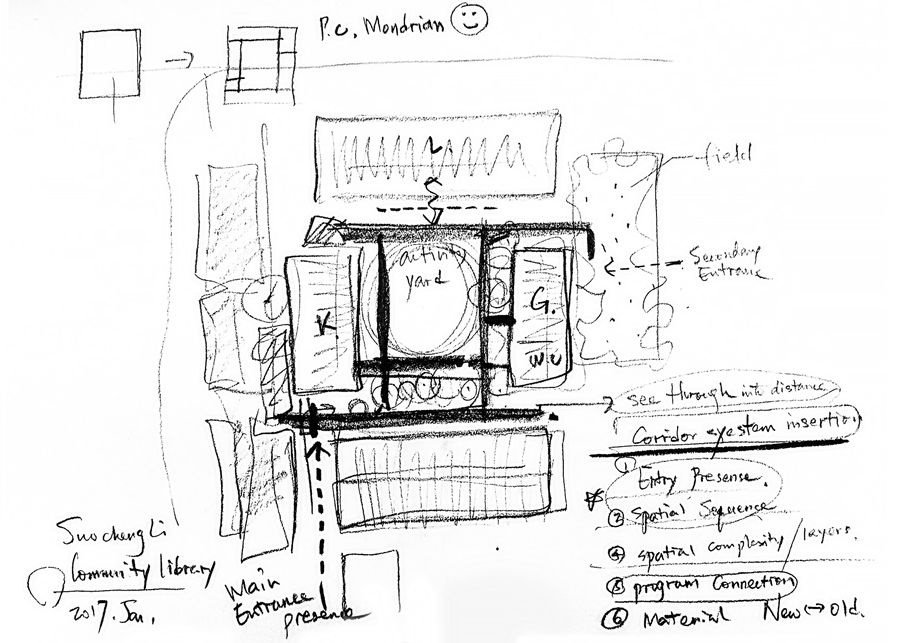 P.C. Mondrian
L
field
activity
yard
Secondary
Entrance
K
G.
W C
see through into distance
Corridor syestem insertion
① Entry Presense.
② Spatial Sequence
④ spatial complexity / layers.
⑤ program Connection
⑥ Material New ↔ Old.
Suochengli
Community library
2017. Jan.
Main
Entrance
presence